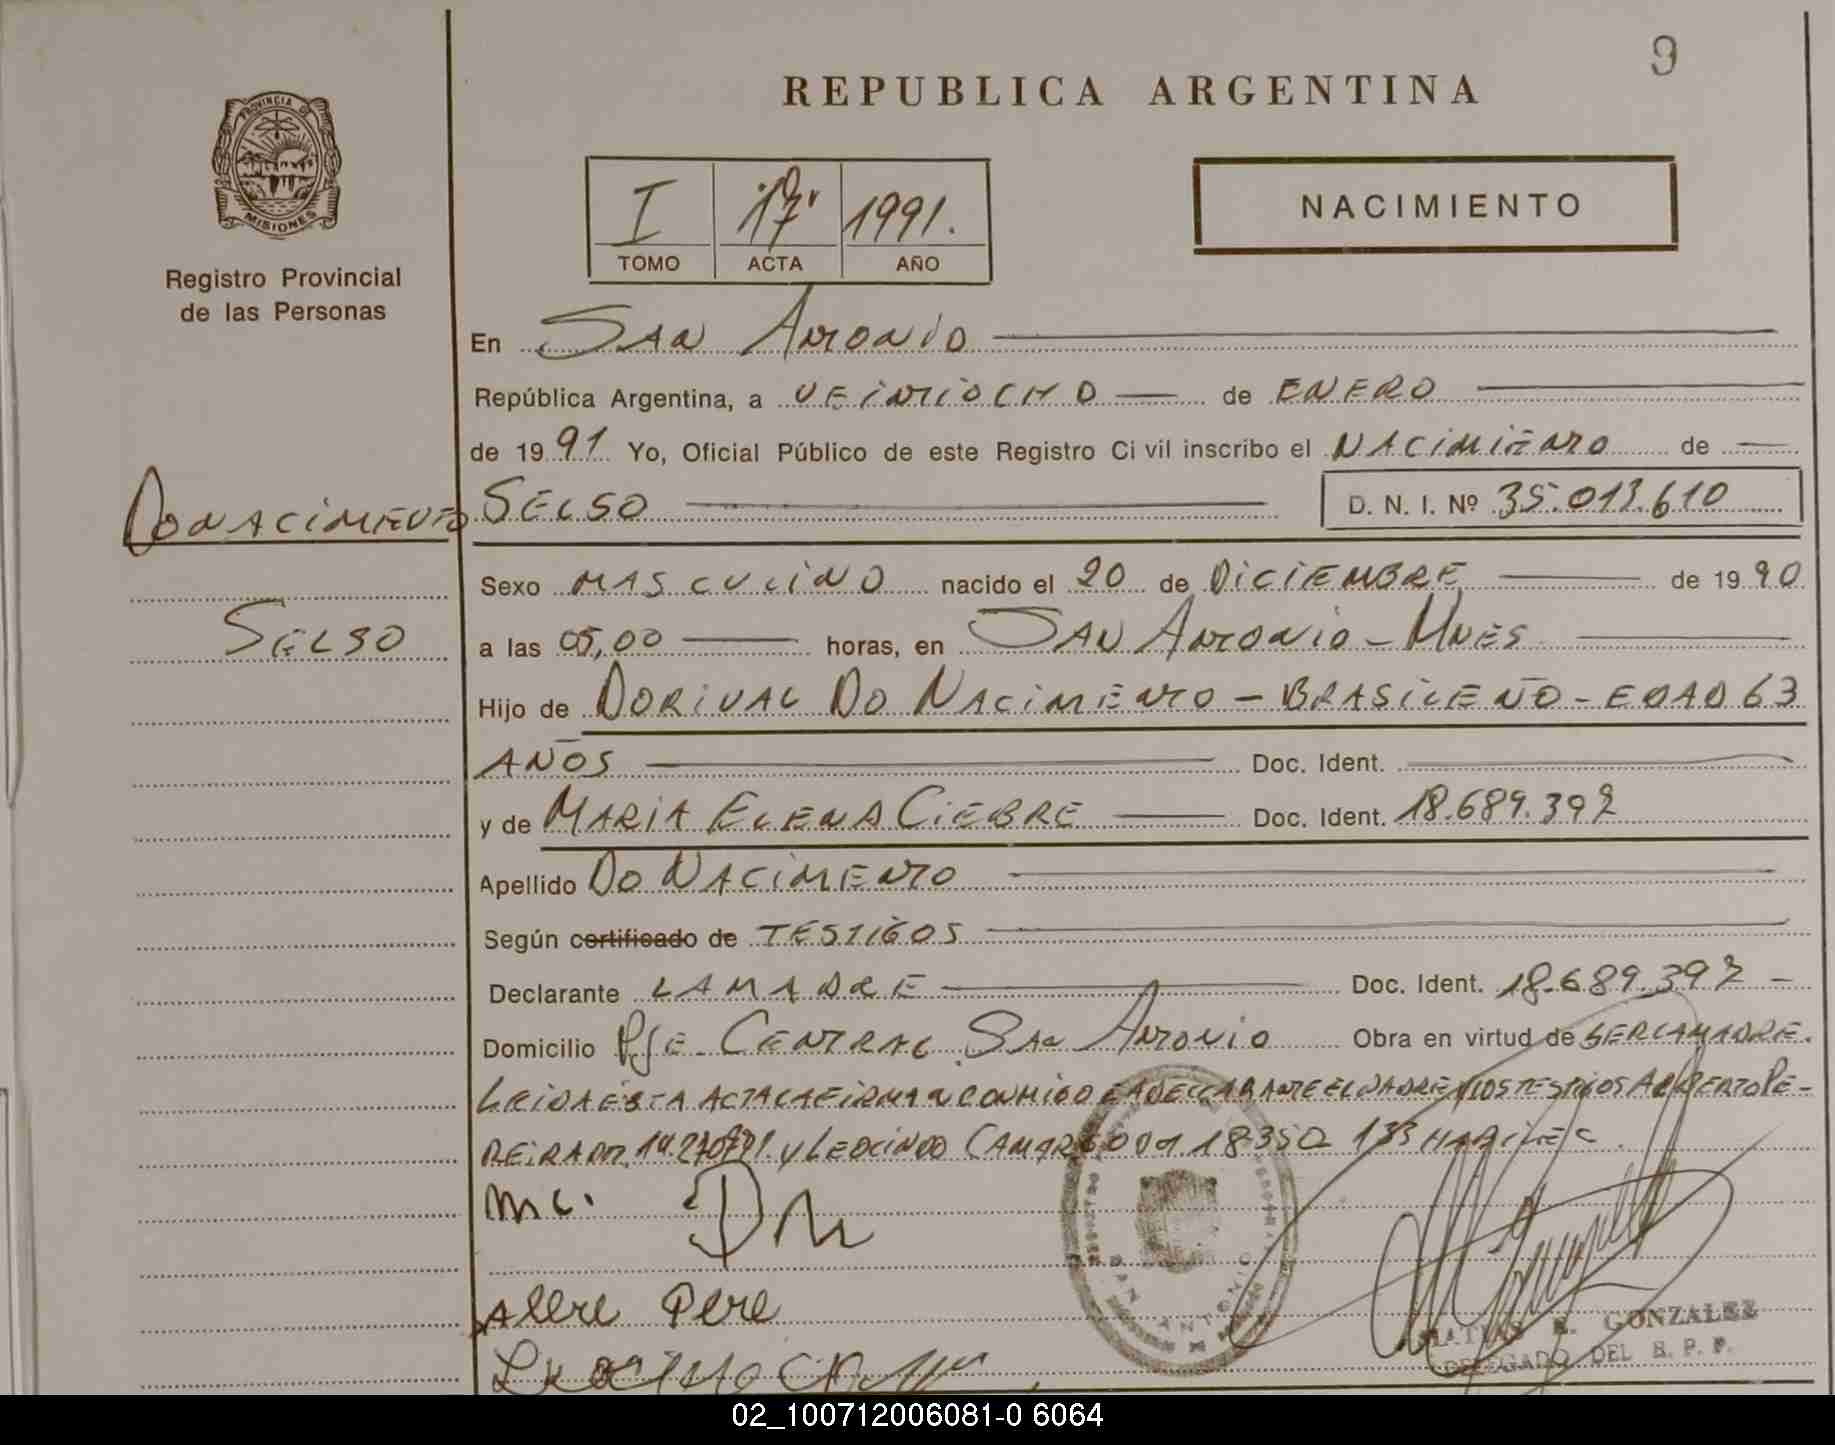 9
REPUBLICA ARGENTINA
PROVINCIA DE
MISIONES
Registro Provincial
de las Personas
I 17 1991.
TOMO ACTA AÑO
NACIMIENTO
En SAN ANTONIO
República Argentina, a VEINTIOCHO de ENERO
de 1991 Yo, Oficial Público de este Registro Civil inscribo el NACIMIENTO de
DO NACIMIENTO SELSO D. N. I. Nº 35.013.610
SELSO
Sexo MASCULINO nacido el 20 de DICIEMBRE de 1990
a las 05,00 horas, en SAN ANTONIO - MNES
Hijo de DORIVAL DO NACIMIENTO - BRASILEÑO - EDAD 63
AÑOS Doc. Ident.
y de MARIA ELENA CIEBRE Doc. Ident. 18.689.392
Apellido DO NACIMENTO
Según certificado de TESTIGOS
Declarante LA MADRE Doc. Ident. 18.689.392 -
Domicilio Pje. CENTRAL SAN ANTONIO Obra en virtud de SER LA MADRE.
LEIDA ESTA ACTA LA FIRMAN CONMIGO LA DECLARANTE EL PADRE Y LOS TESTIGOS ALBERTO PE-
REIRA DNI. y LEOCINDO CAMARGO DNI 18.350 133 HABILES.
SAN ANTONIO
MATIAS R. GONZALEZ
DELEGADO DEL R. P. P.
02_100712006081-0 6064